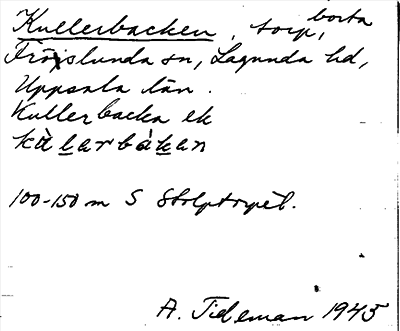 Kullerbacken, torp, borta
Fröslunda sn, Lagunda hd,
Uppsala län.
Kullerbacka ek
kùlarbàkan
100-150 m S Stolptorpet.
A. Tideman 1945